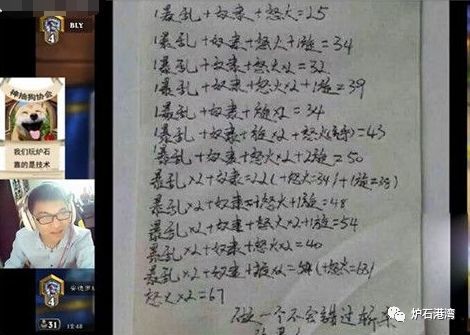 BLY
4
神抽狗协会
我们玩炉石
靠的是技术
4
31
12:48
1暴乱+奴隶+怒火=25
1暴乱+奴隶+怒火+1旋=34
1暴乱+奴隶+怒火×2=32
1暴乱+奴隶+怒火×2+1旋=39
1暴乱+奴隶+旋×2=34
1暴乱+奴隶+旋×2+怒火=43
1暴乱+奴隶+怒火×2+2旋=50
暴乱×2+奴隶=22(+怒火=34)+(旋=38)
暴乱×2+奴隶+怒火+1旋=48
暴乱×2+奴隶+怒火×2+1旋=54
暴乱×2+奴隶+怒火×2=40
暴乱×2+奴隶+旋×2=54(+怒火=63)
怒火×2=67
做一个不会错过斩杀
炉石港湾